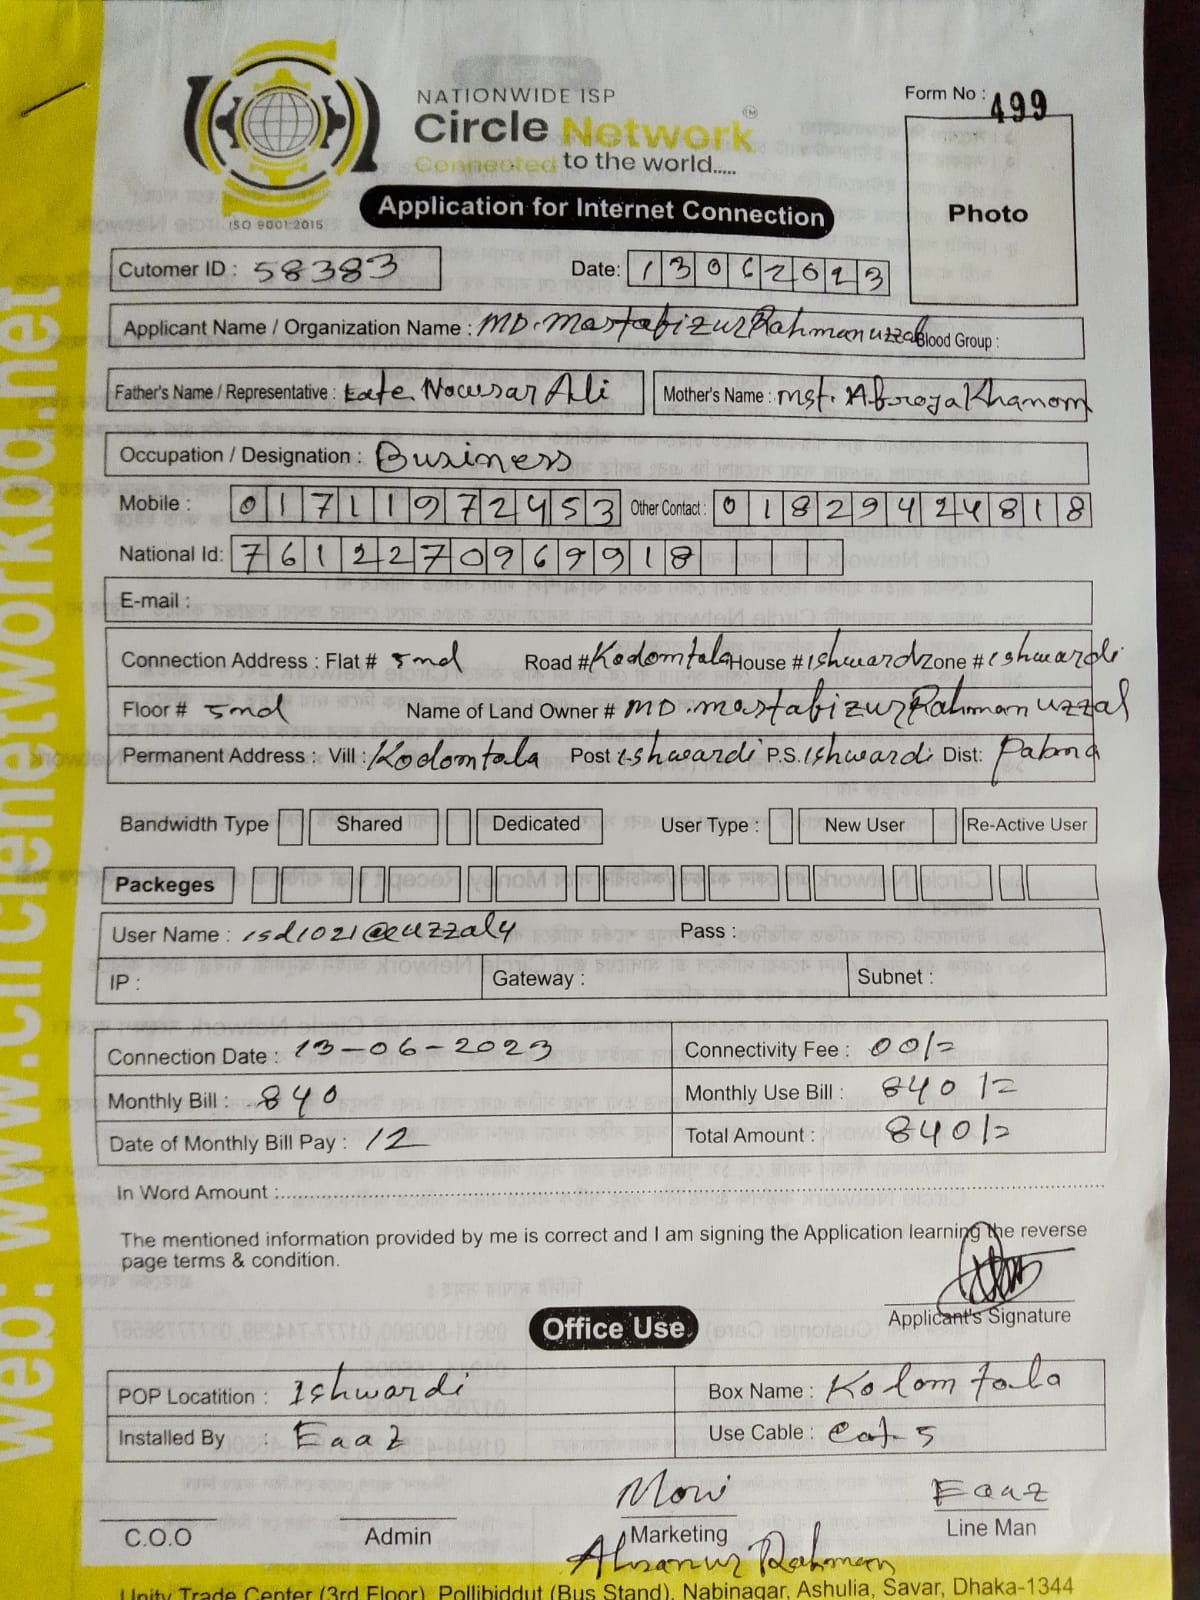 NATIONWIDE ISP
Circle Network TM
Connected to the world.....
ISO 9001:2015
Application for Internet Connection
Form No : 499
Photo
Cutomer ID : 58383 Date: 13062023
Applicant Name / Organization Name : MD. Mostafizur Rahman uzzal Blood Group :
Father's Name / Representative : Late Nowsar Ali Mother's Name : Mst. Afroja Khanom
Occupation / Designation : Business
Mobile : 01711972453 Other Contact : 01829424818
National Id: 7612270969918
E-mail :
Connection Address : Flat # 2nd Road # Kodomtala House # ishwardi Zone # ishwardi
Floor # 2nd Name of Land Owner # MD. Mostafizur Rahman uzzal
Permanent Address : Vill : Kodomtala Post ishwardi P.S. ishwardi Dist: Pabna
Bandwidth Type Shared Dedicated User Type : New User Re-Active User
Packeges
User Name : isd1021@uzzal4 Pass :
IP : Gateway : Subnet :
Connection Date : 13-06-2023 Connectivity Fee : 00/=
Monthly Bill : 840 Monthly Use Bill : 840/=
Date of Monthly Bill Pay : 12 Total Amount : 840/=
In Word Amount :
The mentioned information provided by me is correct and I am signing the Application learning the reverse
page terms & condition.
Applicant's Signature
Office Use
POP Locatition : Ishwardi Box Name : Kolomtala
Installed By : Eaaz Use Cable : Cat 5
Moni Eaaz
C.O.O Admin Marketing Line Man
Ahsanur Rahman
Unity Trade Center (3rd Floor), Pollibiddut (Bus Stand), Nabinagar, Ashulia, Savar, Dhaka-1344
web: www.circlenetworkbd.net